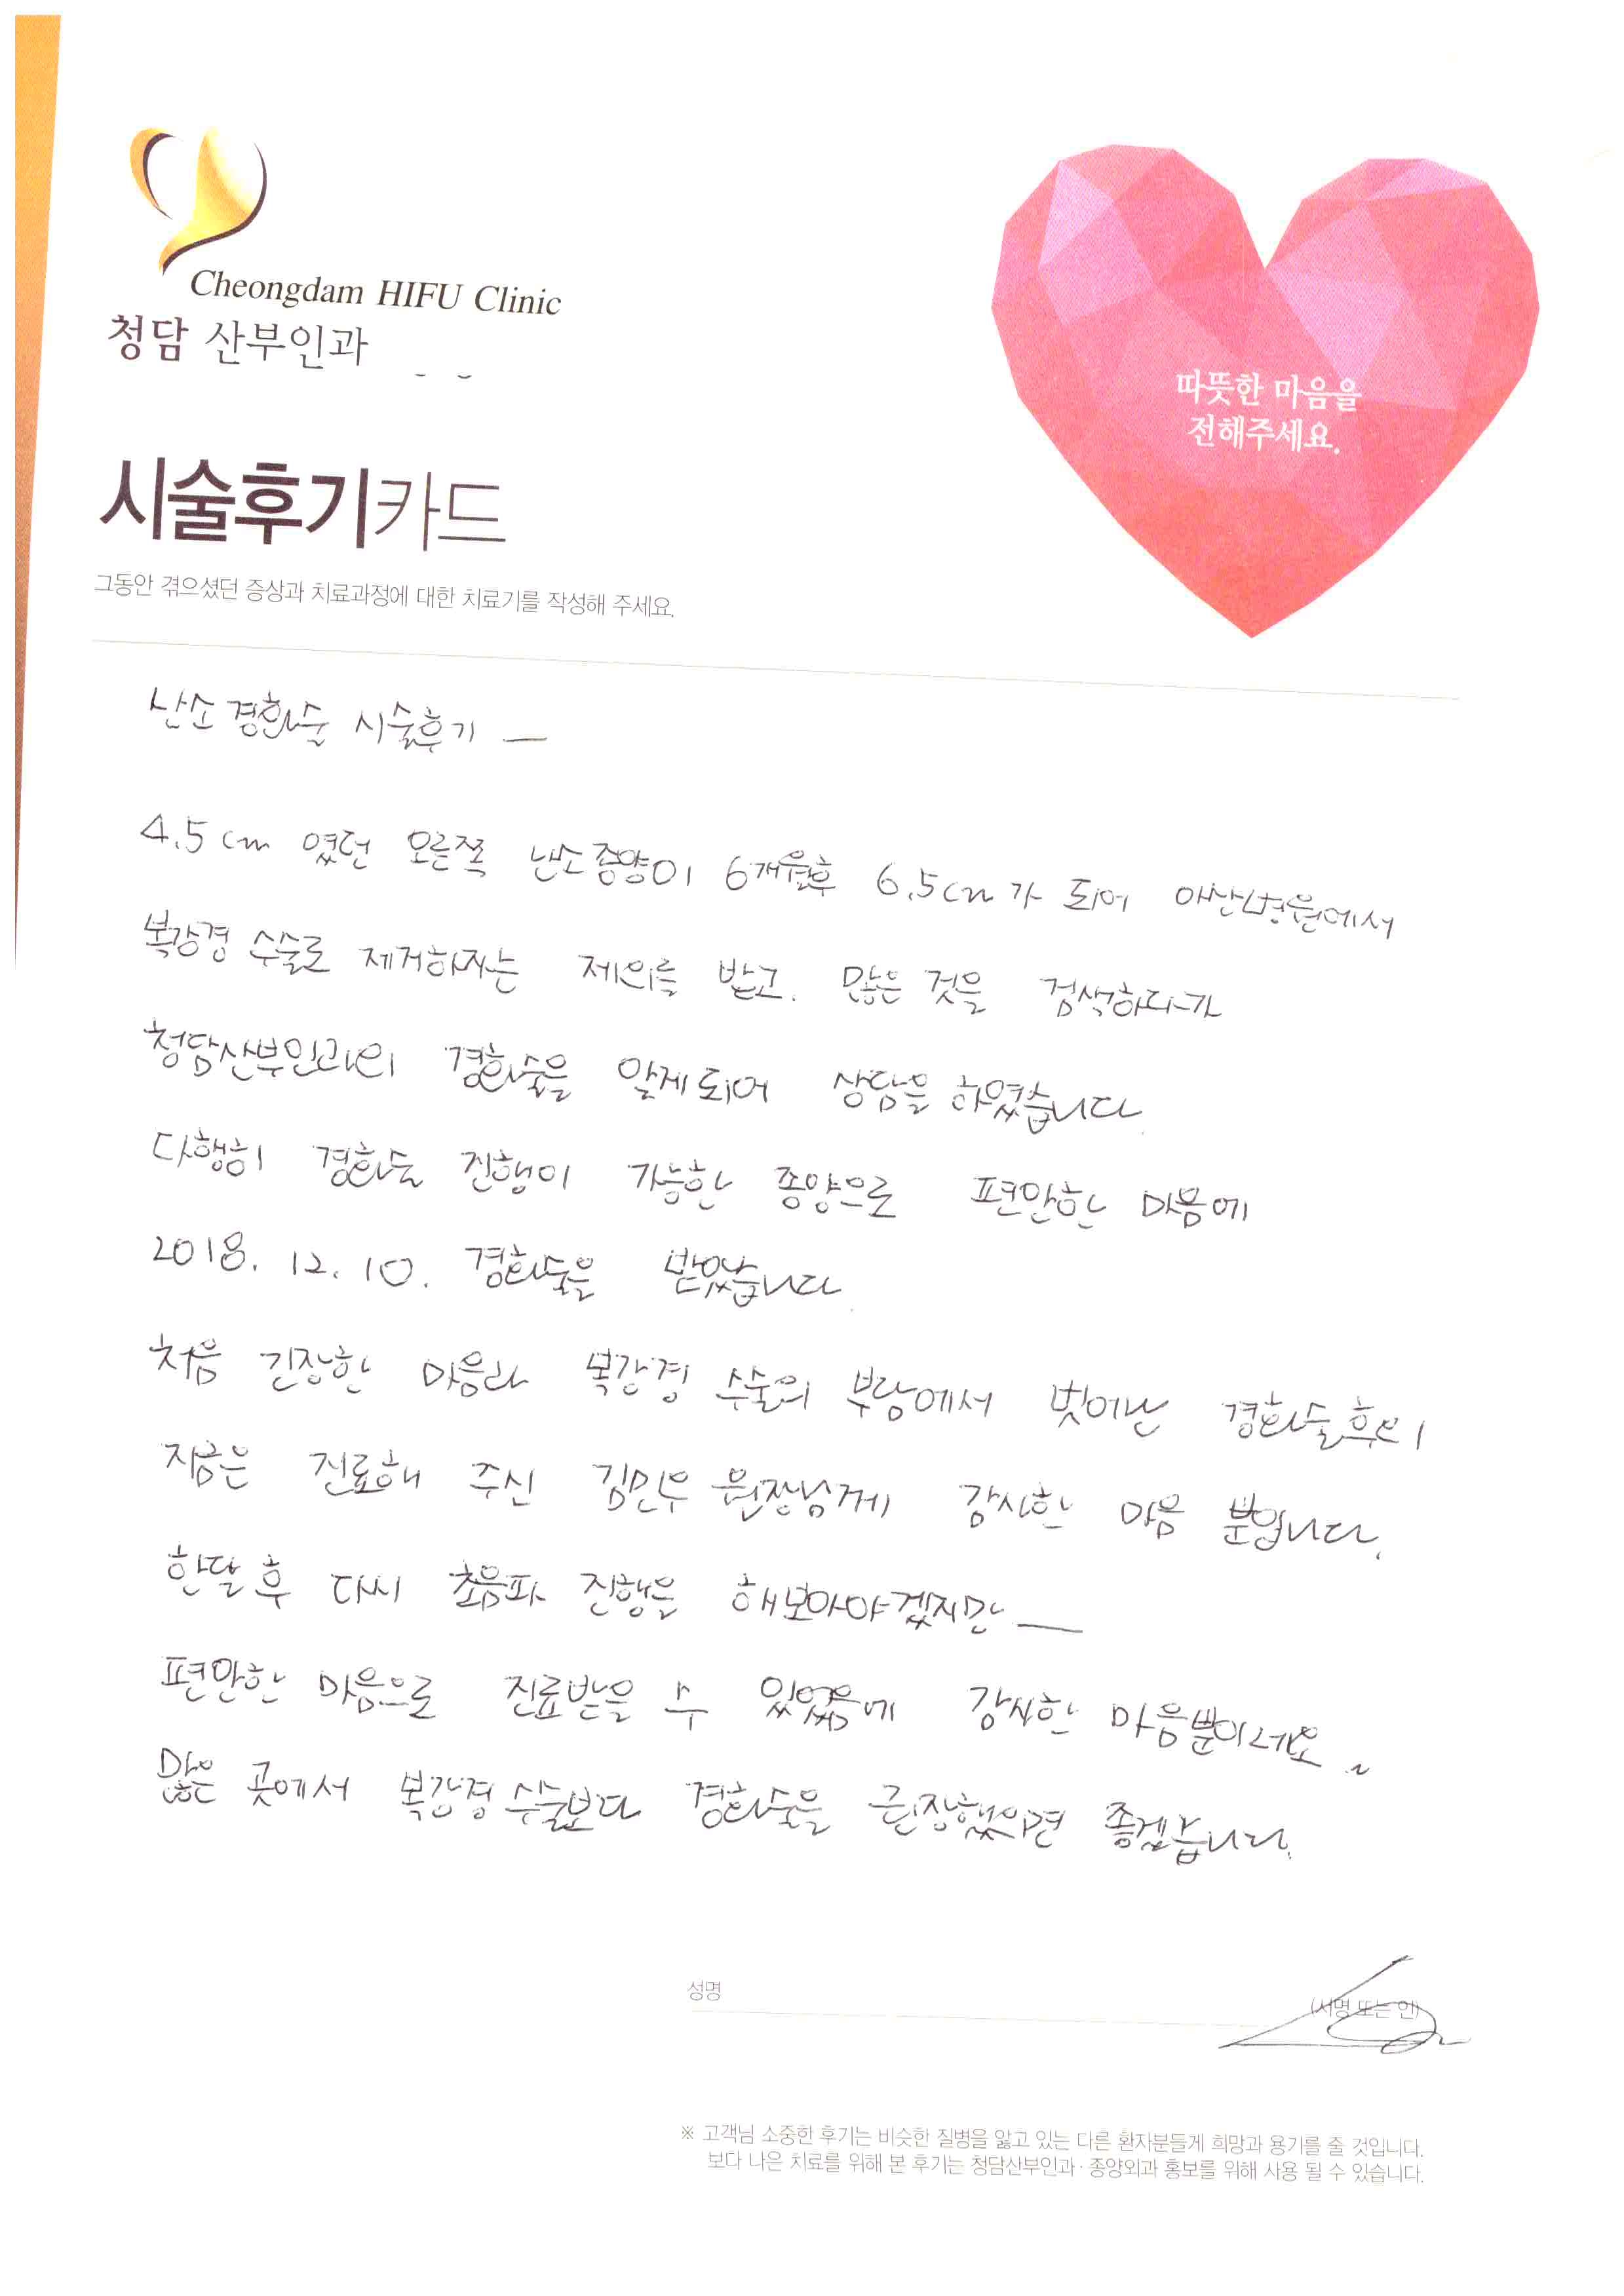 Cheongdam HIFU Clinic
청담 산부인과
따뜻한 마음을
전해주세요.
시술후기카드
그동안 겪으셨던 증상과 치료과정에 대한 치료기를 작성해 주세요.
난소 경화술 시술후기 —
4.5cm 였던 오른쪽 난소종양이 6개월후 6.5cm가 되어 아산병원에서
복강경 수술로 제거하자는 제의를 받고. 많은 것을 검색하다가
청담산부인과의 경화술을 알게되어 상담을 하였습니다.
다행히 경화술 진행이 가능한 종양으로 편안한 마음에
2018. 12. 10. 경화술을 받았습니다.
처음 긴장한 마음과 복강경 수술의 부담에서 벗어난 경화술후의
지금은 진료해 주신 김민우 원장님께 감사한 마음 뿐입니다.
한달후 다시 초음파 진행을 해보아야겠지만 —
편안한 마음으로 진료받을 수 있었음에 감사한 마음뿐이네요~
많은 곳에서 복강경 수술보다 경화술을 권장했으면 좋겠습니다.
성명
(서명 또는 인)
※ 고객님 소중한 후기는 비슷한 질병을 앓고 있는 다른 환자분들게 희망과 용기를 줄 것입니다.
보다 나은 치료를 위해 본 후기는 청담산부인과·종양외과 홍보를 위해 사용 될 수 있습니다.